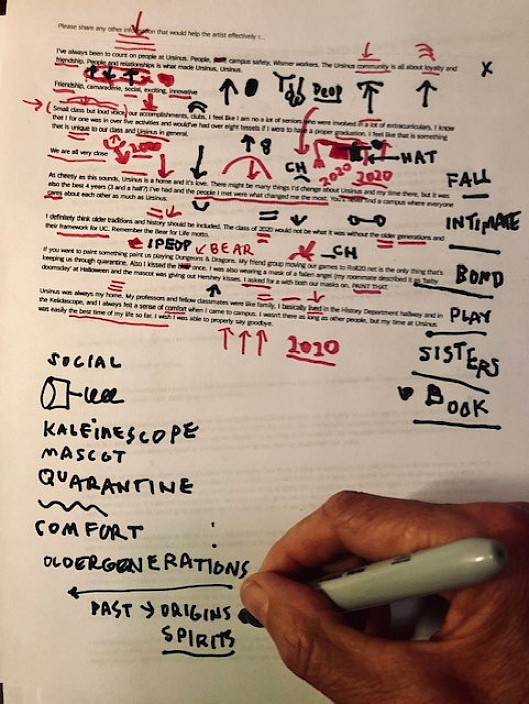 Please share any other information that would help the artist effectively
I've always been to count on people at Ursinus. People, campus safety, Wismer workers. The Ursinus community is all about loyalty and
friendship. People and relationships is what made Ursinus, Ursinus.
X
Friendship, camaraderie, social, exciting, innovative
DEOP
(Small class but loud voice) our accomplishments, clubs, I feel like I am no a lot of seniors who were involved in a lot of extracurriculars. I know
that for one was in over five activities and would've had over eight tassels if I were to have a proper graduation. I feel like that is something
that is unique to our class and Ursinus in general.
8
HAT
We are all very close
2020
CH
2020
2020
FALL
As cheesy as this sounds, Ursinus is a home and it's love. There might be many things I'd change about Ursinus and my time there, but it was
also the best 4 years (3 and a half?) I've had and the people I met were what changed me the most. You'll never find a campus where everyone
cares about each other as much as Ursinus.
INTIMATE
I definitely think older traditions and history should be included. The class of 2020 would not be what it was without the older generations and
their framework for UC. Remember the Bear for Life motto.
BEAR
CH
BOND
If you want to paint something paint us playing Dungeons & Dragons. My friend group moving our games to Roll20.net is the only thing that's
keeping us through quarantine. Also I kissed the bear once. I was also wearing a mask of a fallen angel (my roommate described it as 'baby
doomsday' at Halloween and the mascot was giving out Hershey kisses. I asked for a with both our masks on. PAINT THAT.
PLAY
Ursinus was always my home. My professors and fellow classmates were like family, I basically lived in the History Department hallway and in
the Kelidascope, and I always felt a sense of comfort when I came to campus. I wasn't there as long as other people, but my time at Ursinus
was easily the best time of my life so far. I wish I was able to properly say goodbye.
2020
SISTERS
BOOK
SOCIAL
KALEINESCOPE
MASCOT
QUARANTINE
COMFORT
OLDERGENERATIONS
PAST → ORIGINS
SPIRITS